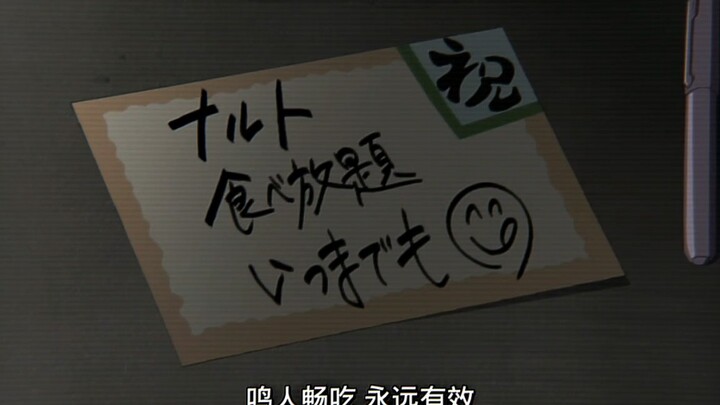 祝
ナルト
食べ放題
いつまでも
鸣人畅吃 永远有效